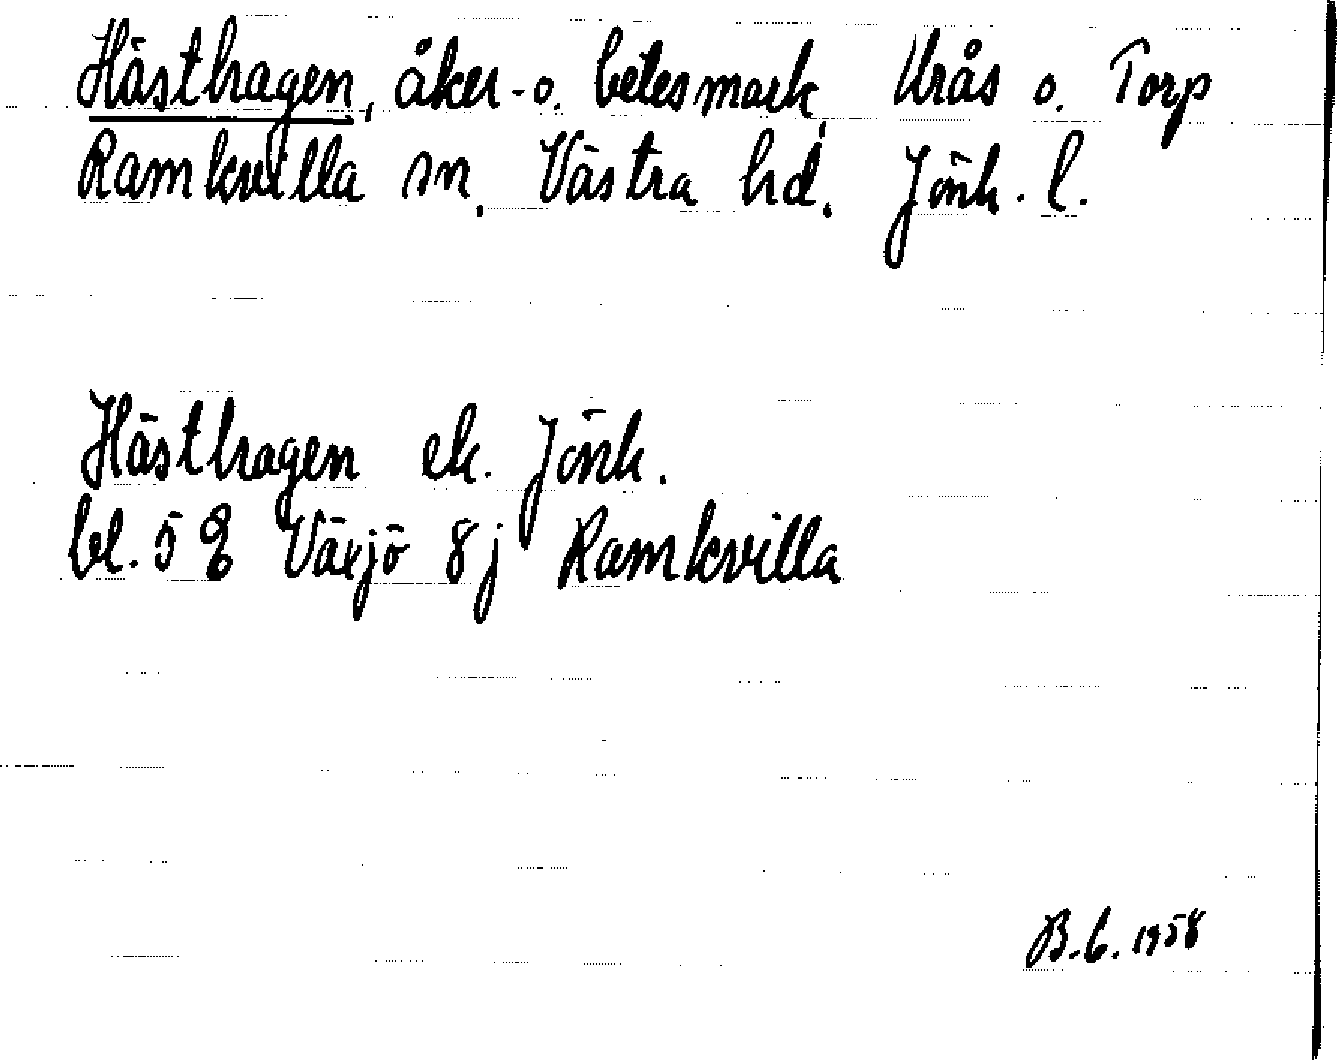 Hästhagen, åker- o. betesmark, Urås o. Torp
Ramkvilla sn. Västra hd. Jönk. l.
Hästhagen ek. Jönk.
bl. 5 E Växjö 8j Ramkvilla
B.G. 1958